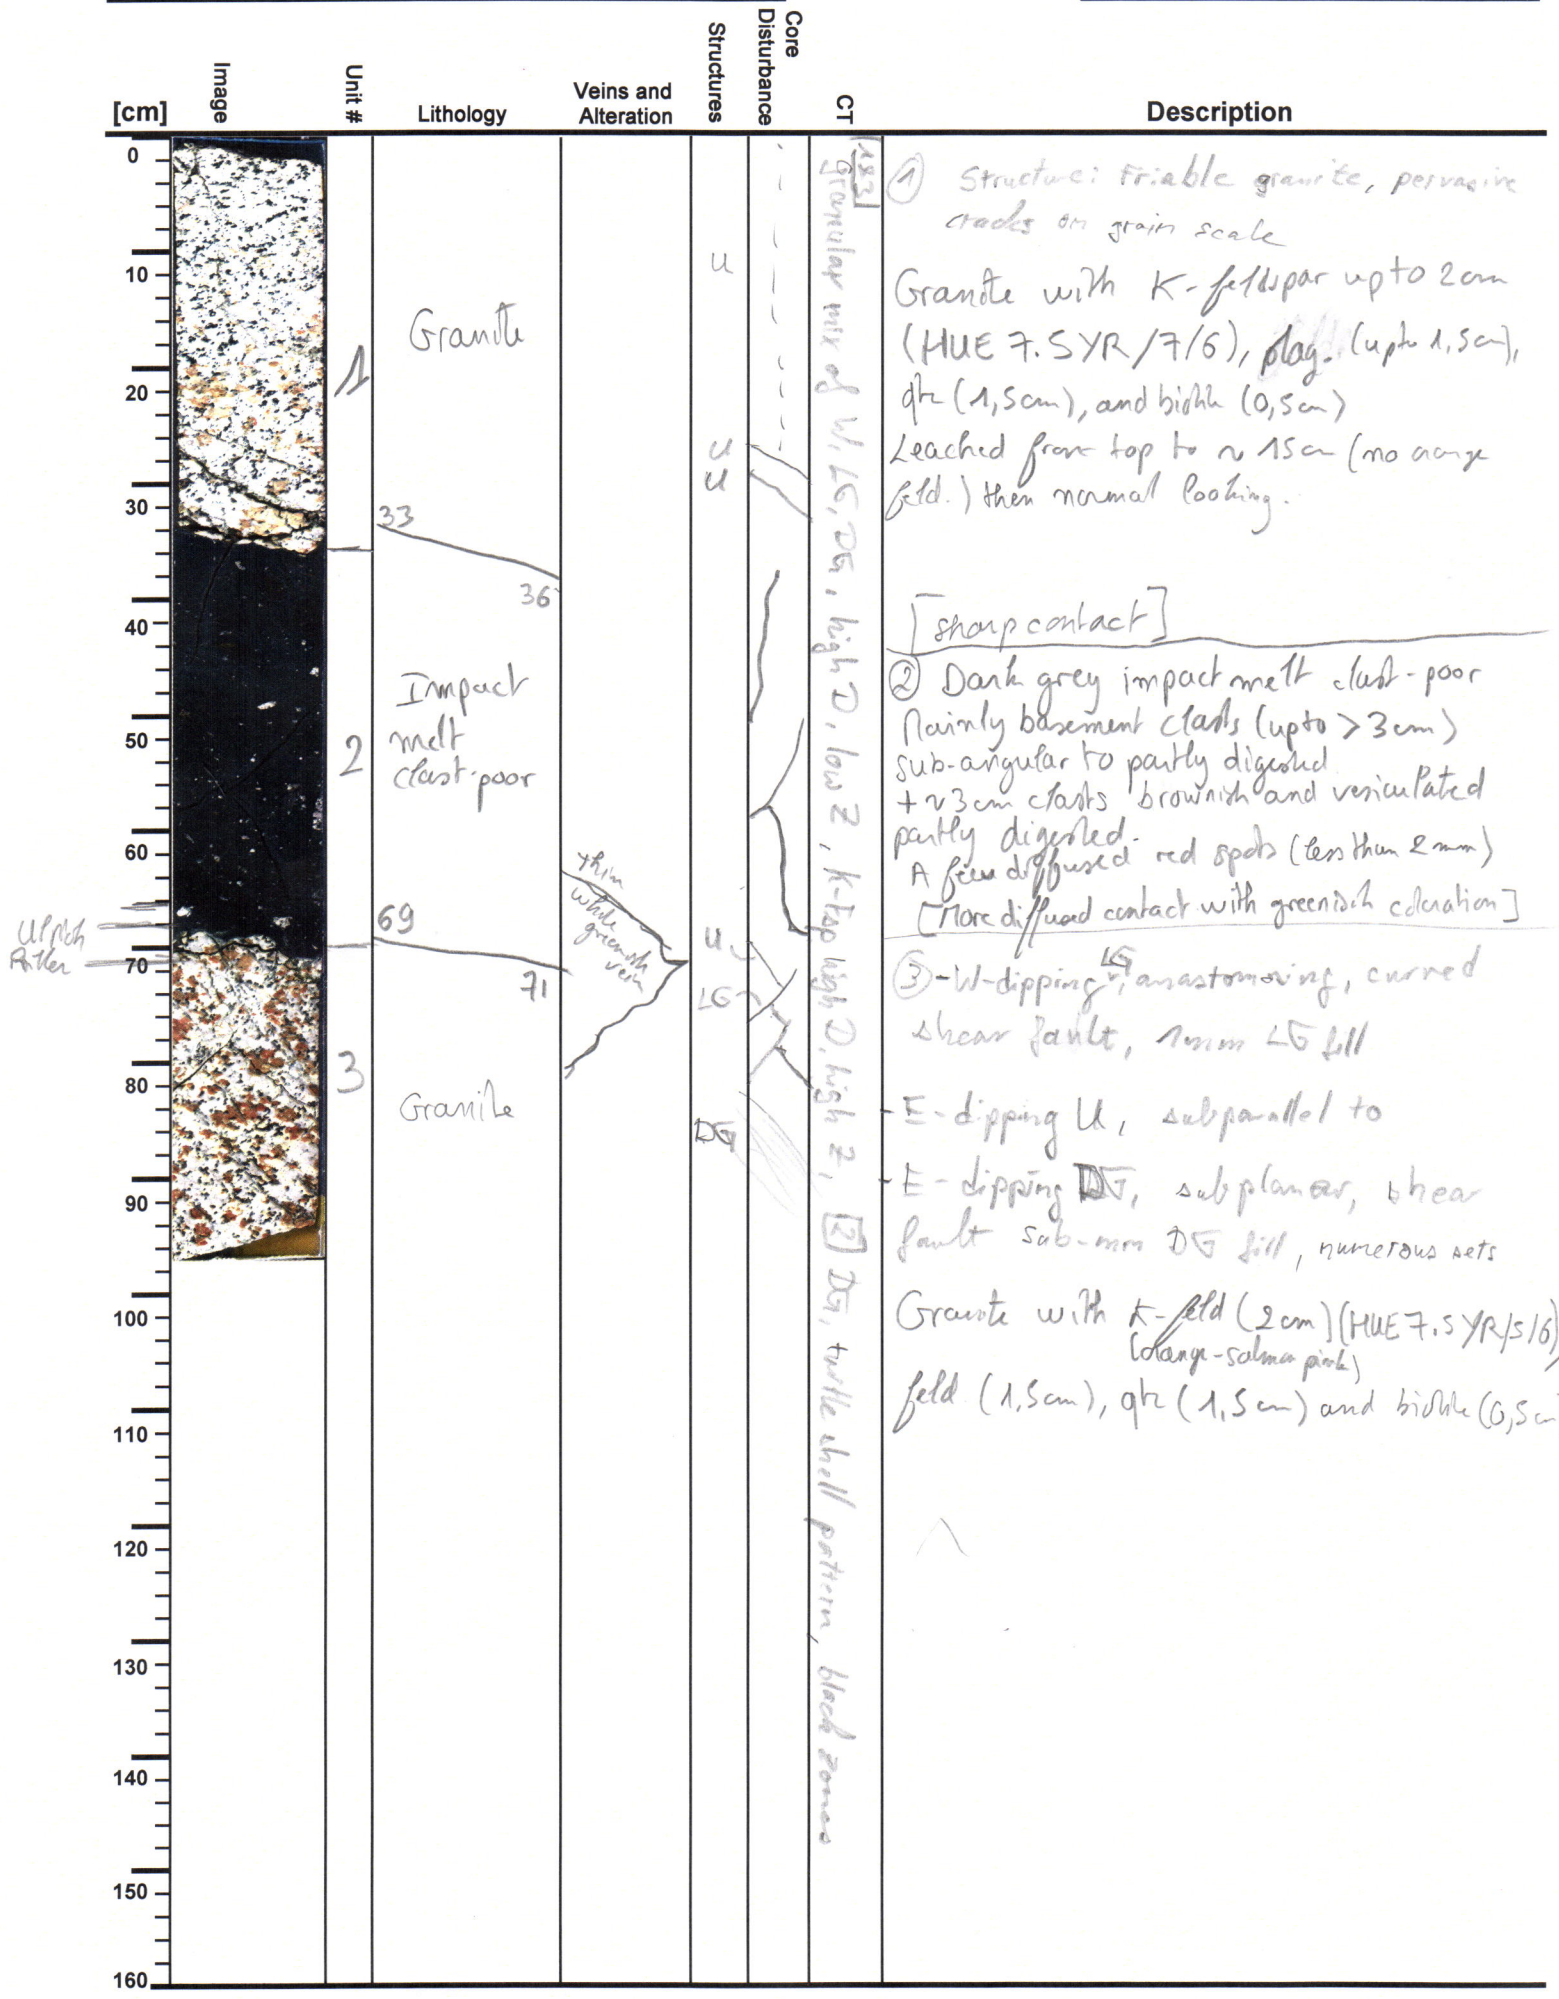 [cm]
Image
Unit #
Lithology
Veins and
Alteration
Structures
Core
Disturbance
CT
Description
0
10
20
30
40
50
60
70
80
90
100
110
120
130
140
150
160
1
2
3
Granite
33
36
Impact
melt
clast-poor
69
71
Granite
thin
white
greenish
vein
U
U
U
U
LG
DG
[1&3]
Granular mix of W, LG, DG, high D, low Z, K-fsp high D, high Z, [2] DG, turtle shell pattern, black zones
① Structure: Friable granite, pervasive
cracks on grain scale
Granite with K-feldspar up to 2cm
(HUE 7.5YR/7/6), plag. (upto 1,5cm),
qtz (1,5cm), and biotite (0,5cm)
Leached from top to ~ 15cm (no orange
feld.) then normal looking.
[sharp contact]
② Dark grey impact melt clast-poor
Mainly basement clasts (upto >3cm)
sub-angular to partly digested
+ ~3cm clasts brownish and vesiculated
partly digested.
A few diffused red spots (less than 2mm)
[More diffused contact with greenish coloration]
③ -W-dipping LG, anastomosing, curved
shear fault, 1mm LG fill
- E-dipping U, subparallel to
- E-dipping DG, subplanar, shear
fault sub-mm DG fill, numerous sets
Granite with K-feld (2cm) (HUE 7.5YR/5/6),
(orange-salmon pink)
feld (1,5cm), qtz (1,5cm) and biotite (0,5cm